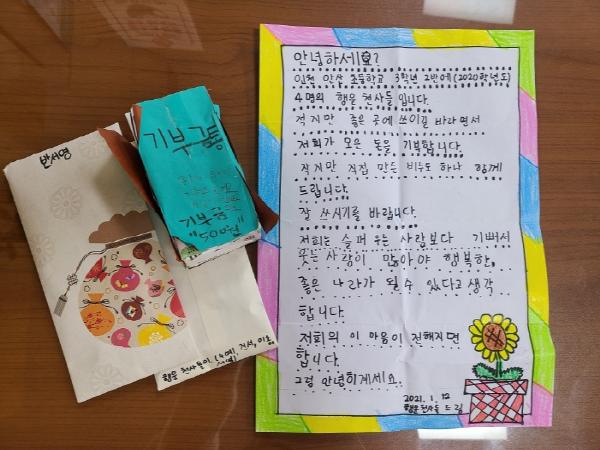 반서영
기부금통
기부금
"500원"
행운 천사들이
안녕하세요?
인천 안산 초등학교 3학년 2반에(2020학년도)
4명의 행운 천사들입니다.
적지만 좋은 곳에 쓰이길 바라면서
저희가 모은 돈을 기부합니다.
작지만 직접 만든 비누도 하나 함께
드립니다.
잘 쓰시기를 바랍니다.
저희는 슬퍼 우는 사람보다 기뻐서
웃는 사람이 많아야 행복한,
좋은 나라가 될 수 있다고 생각
합니다.
저희의 이 마음이 전해지면
합니다.
그럼 안녕히계세요.
2021. 1. 12
행운천사들 드림